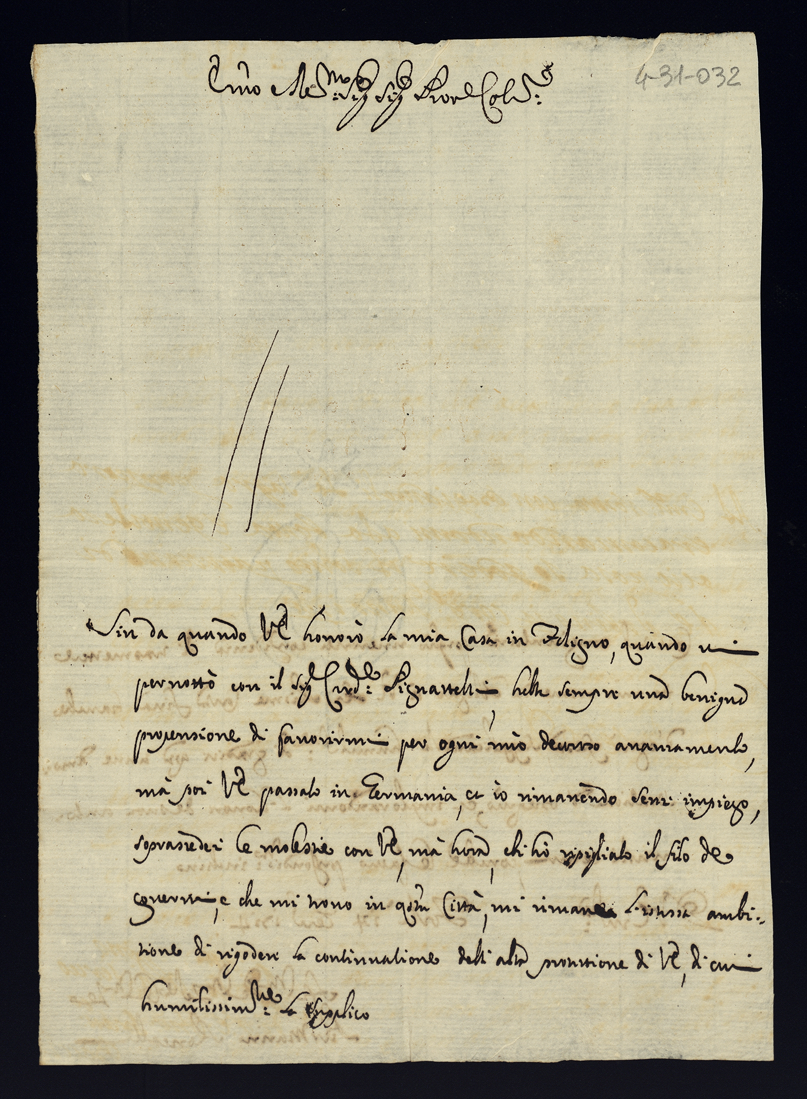 4-31-032
Sin da quando VE honorò la mia Casa in Foligno, quando vi
pernottò con il Sig.r Card.le Pignattelli, hebbe sempre una benigna
propensione di favorirmi per ogni mio decoroso avanzamento,
mà poi VE passato in Germania, et io rimanendo senz' impiego,
soprasedei le molestie con VE, mà hora, chi hò ripigliato il filo de
governi, e che mi trovo in q.sta Città, mi rimane l'istessa ambi-
tione di rigodere la continuatione dell' alta protettione di VE, di cui
humilissim.te la supplico